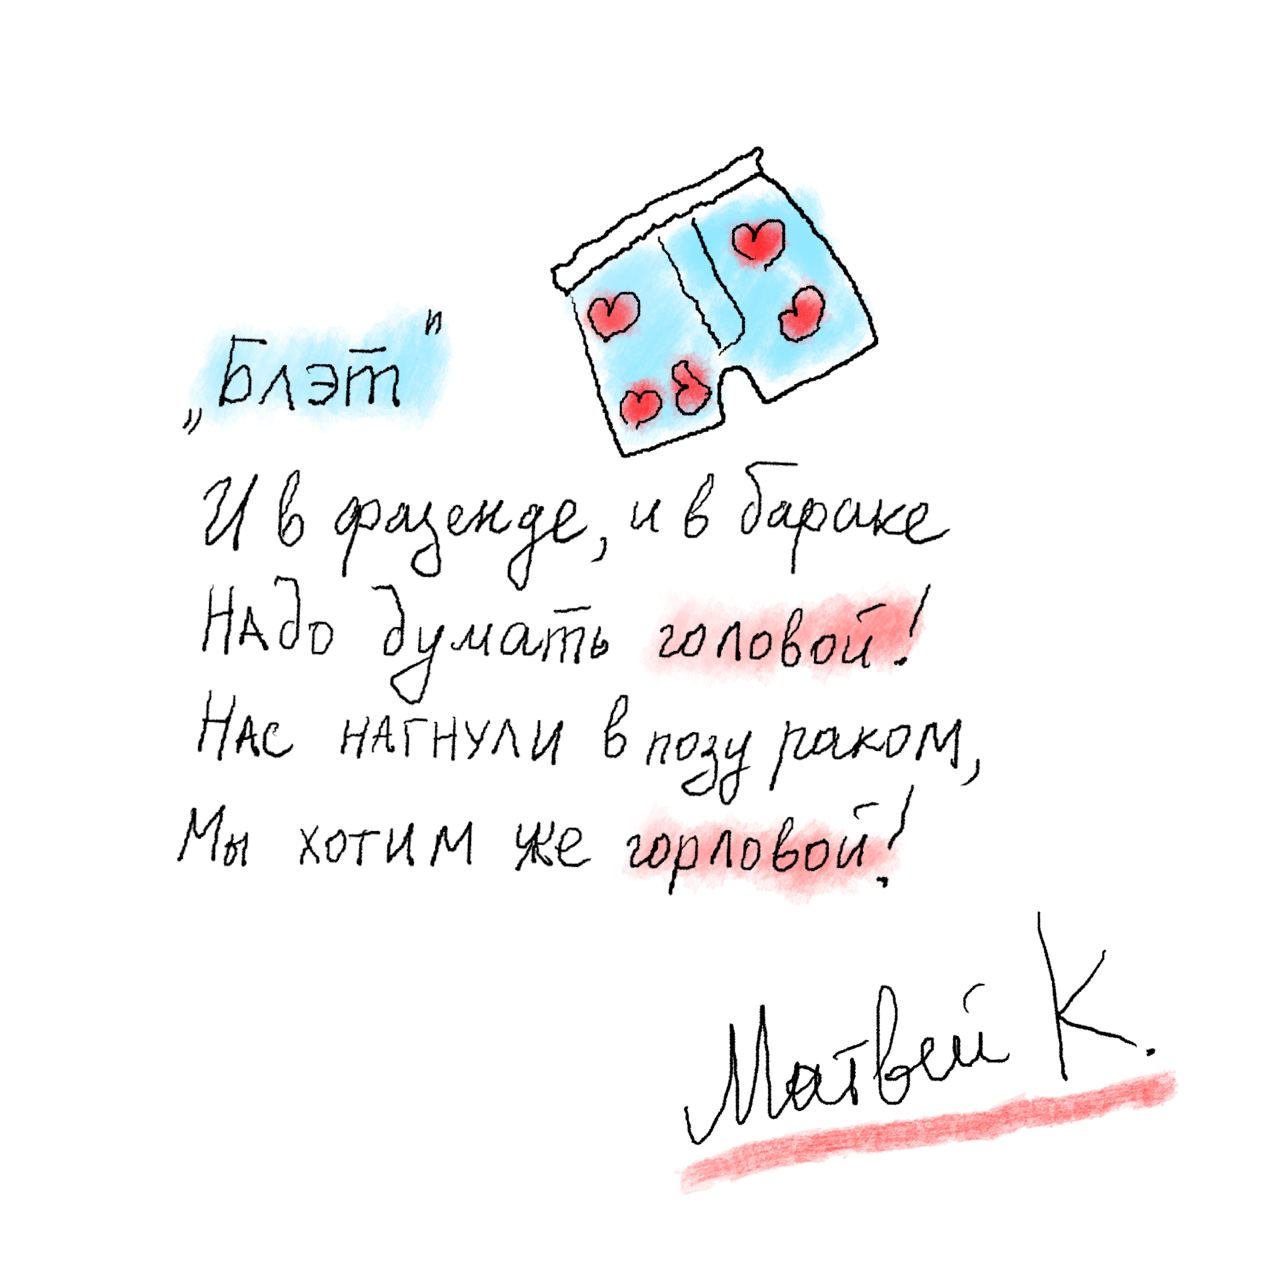 „Блэт"
И в фазенде, и в бараке
Надо думать головой!
Нас нагнули в позу раком,
Мы хотим же горловой!
Матвей К.